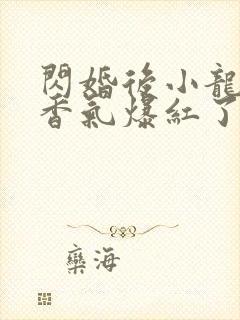 閃婚後小龍
香氣爆紅了
欒海